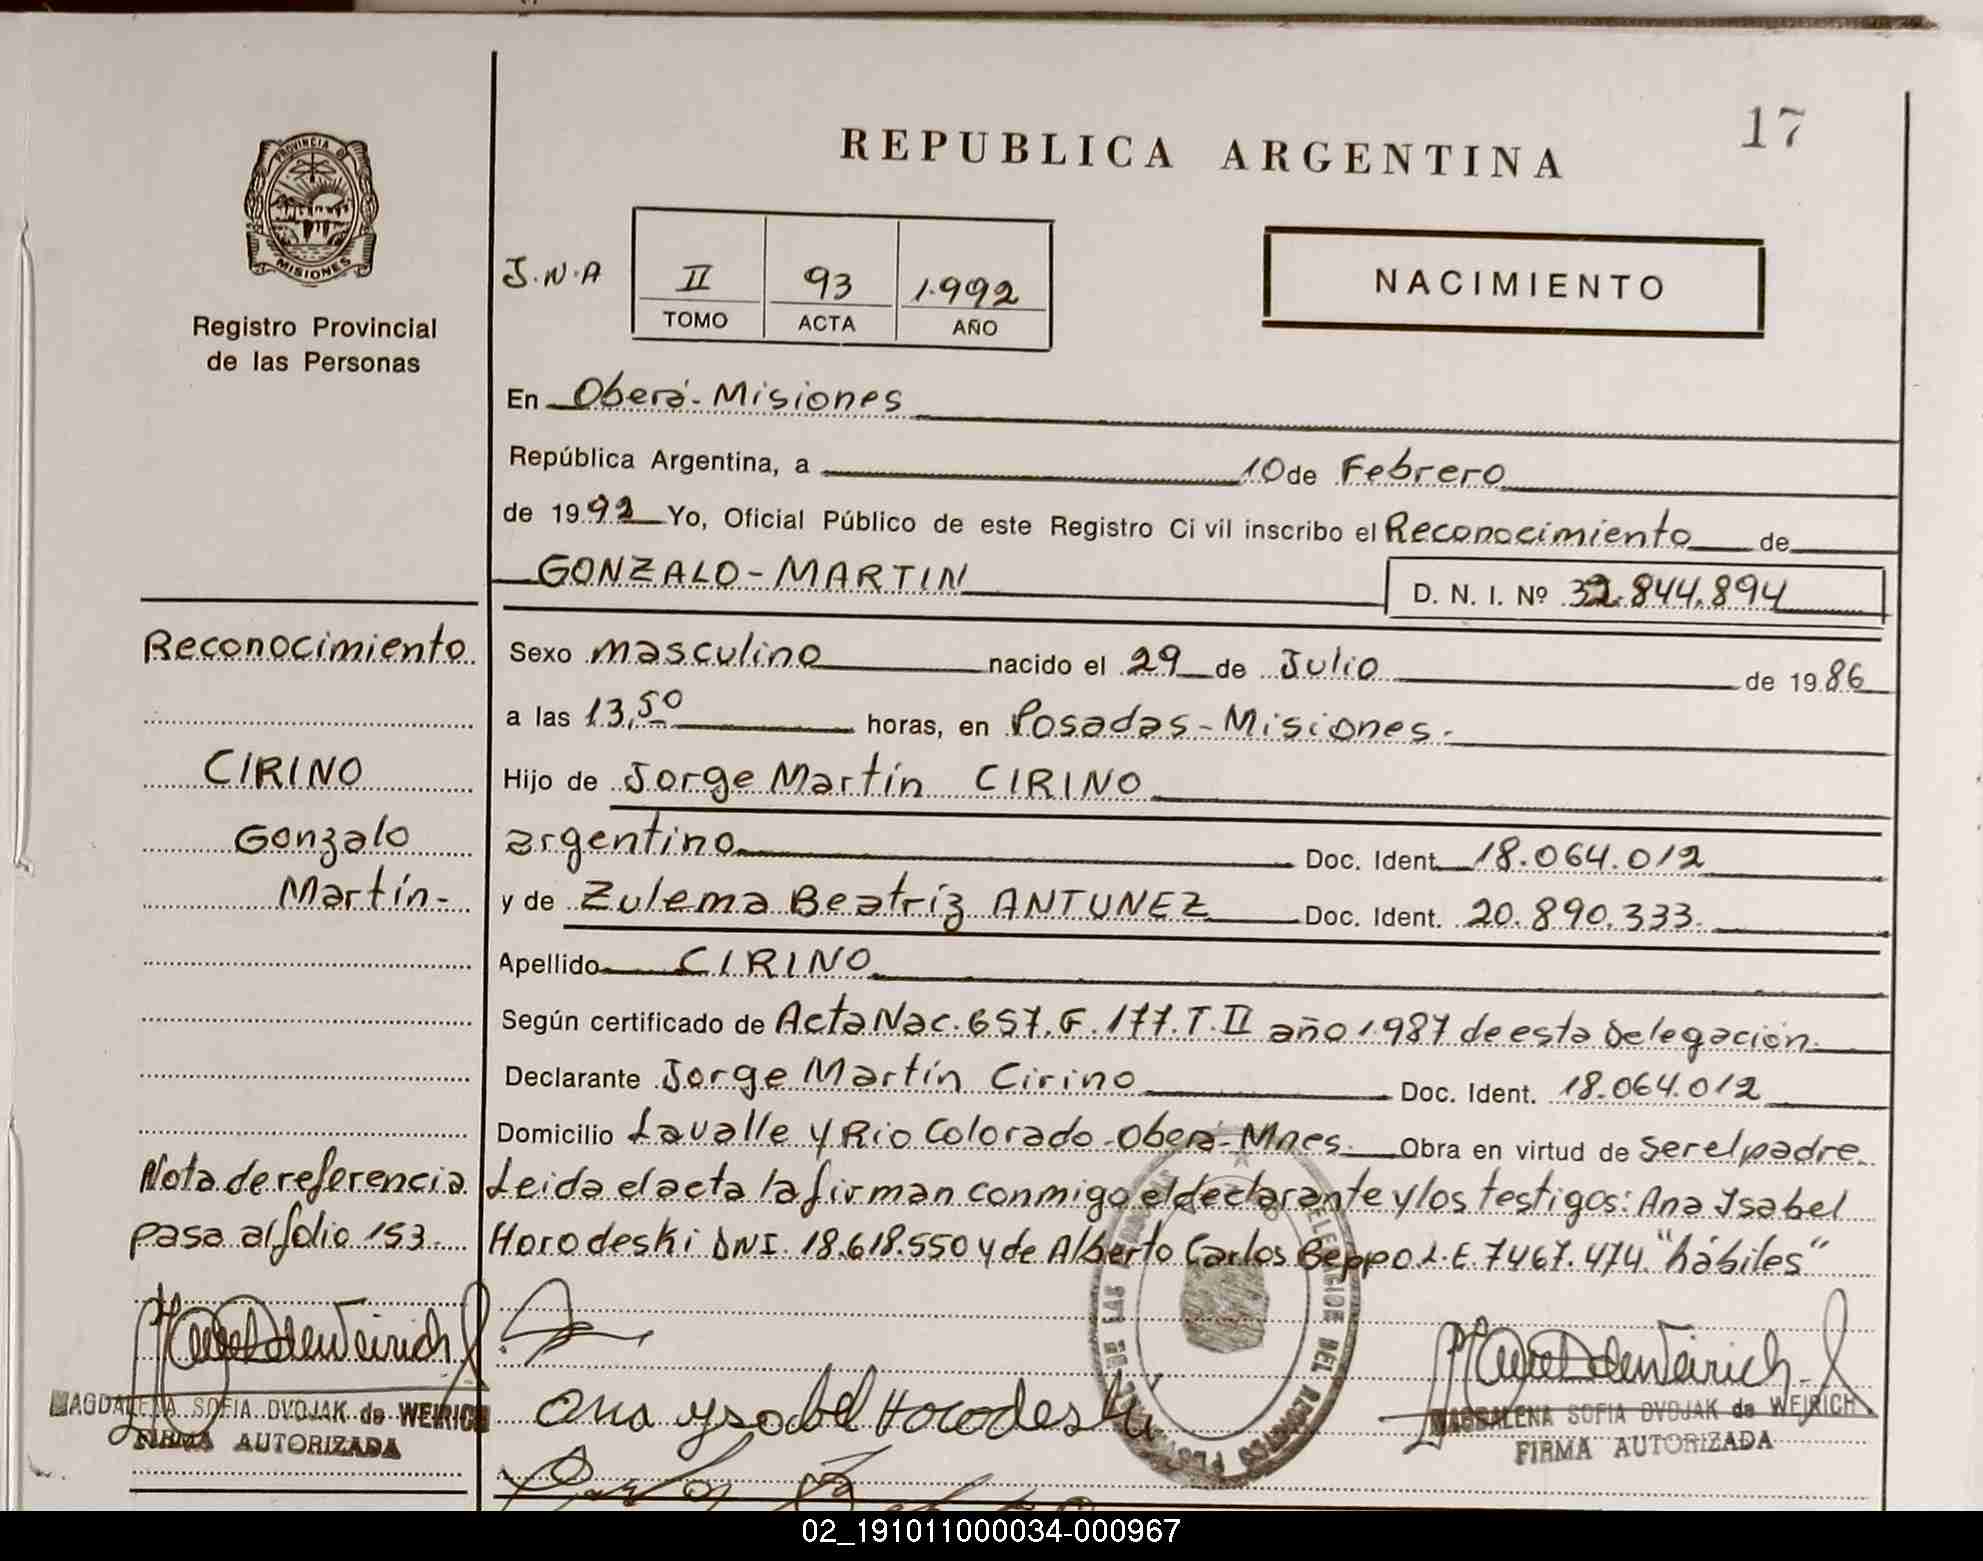 17
REPUBLICA ARGENTINA
PROVINCIA DE
MISIONES
Registro Provincial
de las Personas
J.N.A II 93 1.992
TOMO ACTA AÑO
NACIMIENTO
En Oberá-Misiones
República Argentina, a 10 de Febrero
de 1992 Yo, Oficial Público de este Registro Civil inscribo el Reconocimiento de
GONZALO-MARTIN D. N. I. Nº 32.844.894
Reconocimiento
CIRINO
Gonzalo
Martín-
Nota de referencia
pasa al folio 153.
MAGDALENA SOFIA DVOJAK de WEIRICH
FIRMA AUTORIZADA
Sexo masculino nacido el 29 de Julio de 1986
a las 13,50 horas, en Posadas-Misiones.
Hijo de Jorge Martín CIRINO
argentino Doc. Ident. 18.064.012
y de Zulema Beatríz ANTUNEZ Doc. Ident. 20.890.333.
Apellido CIRINO
Según certificado de Acta Nac. 657. F. 177. T. II año 1.987 de esta Delegación.
Declarante Jorge Martín Cirino Doc. Ident. 18.064.012
Domicilio Lavalle y Rio Colorado-Oberá-Mnes. Obra en virtud de ser el padre.
Leida el acta la firman conmigo el declarante y los testigos: Ana Ysabel
Horodeski DNI. 18.618.550 y de Alberto Carlos Beppo L.E. 7467.474. "hábiles"
Ana Ysabel Horodeski
MAGDALENA SOFIA DVOJAK de WEIRICH
FIRMA AUTORIZADA
02_191011000034-000967